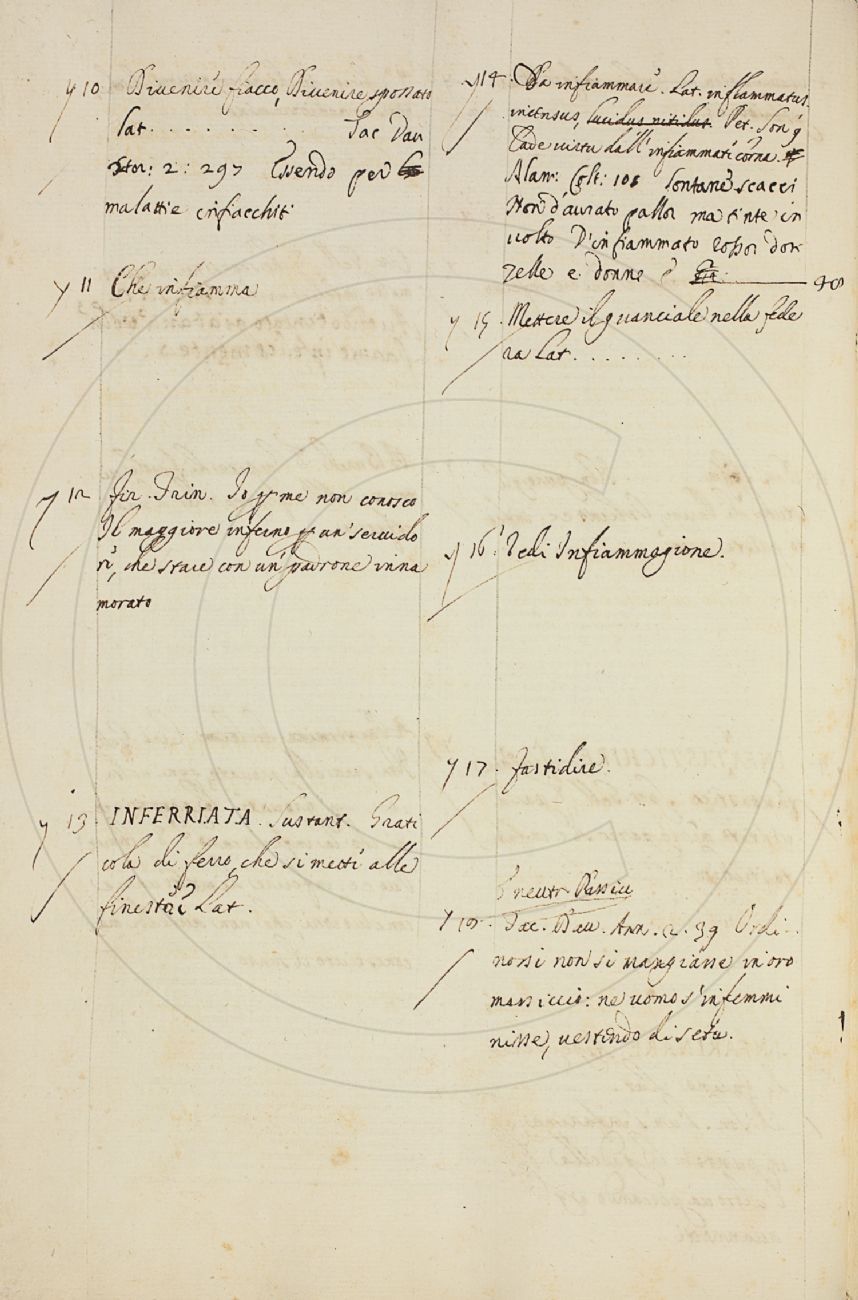 y 10 Divenire fiacco, Divenire spossato
Lat. . . . . . . . . . Tac Dav
Stor: 2: 297 Essendo per
malattie infiacchiti
y 11 Che infiamma
y 12 Fir. Trin. Io per me non conosco
Il maggiore inferno per un' servido
re, che stare con un' padrone inna
morato
y 13. INFERRIATA. Sustant. Grati
cola di ferro, che si mette alle
finestre Lat.
y 14. Da infiammare. Lat. inflammatus.
incensus, lucidus nitidus. Pet. Son. 9
Cade virtù dall' infiammate corna.
Alam: Colt: 108 Lontane scacci
Non d'aurato pallor ma tinte in
volto D'infiammato rossor don
zelle e donne
y 15. Mettere il guanciale nella fede
ra Lat. . . . . . . . .
y 16. Vedi Infiammagione.
y 17. Fastidire.
E neutr. Passiu
y 18. Tac. Dav. Ann. 2. 39 Ordi-
nossi non si mangiasse in oro
massiccio: ne uomo s'infemmi
nisse, vestendo di seta.